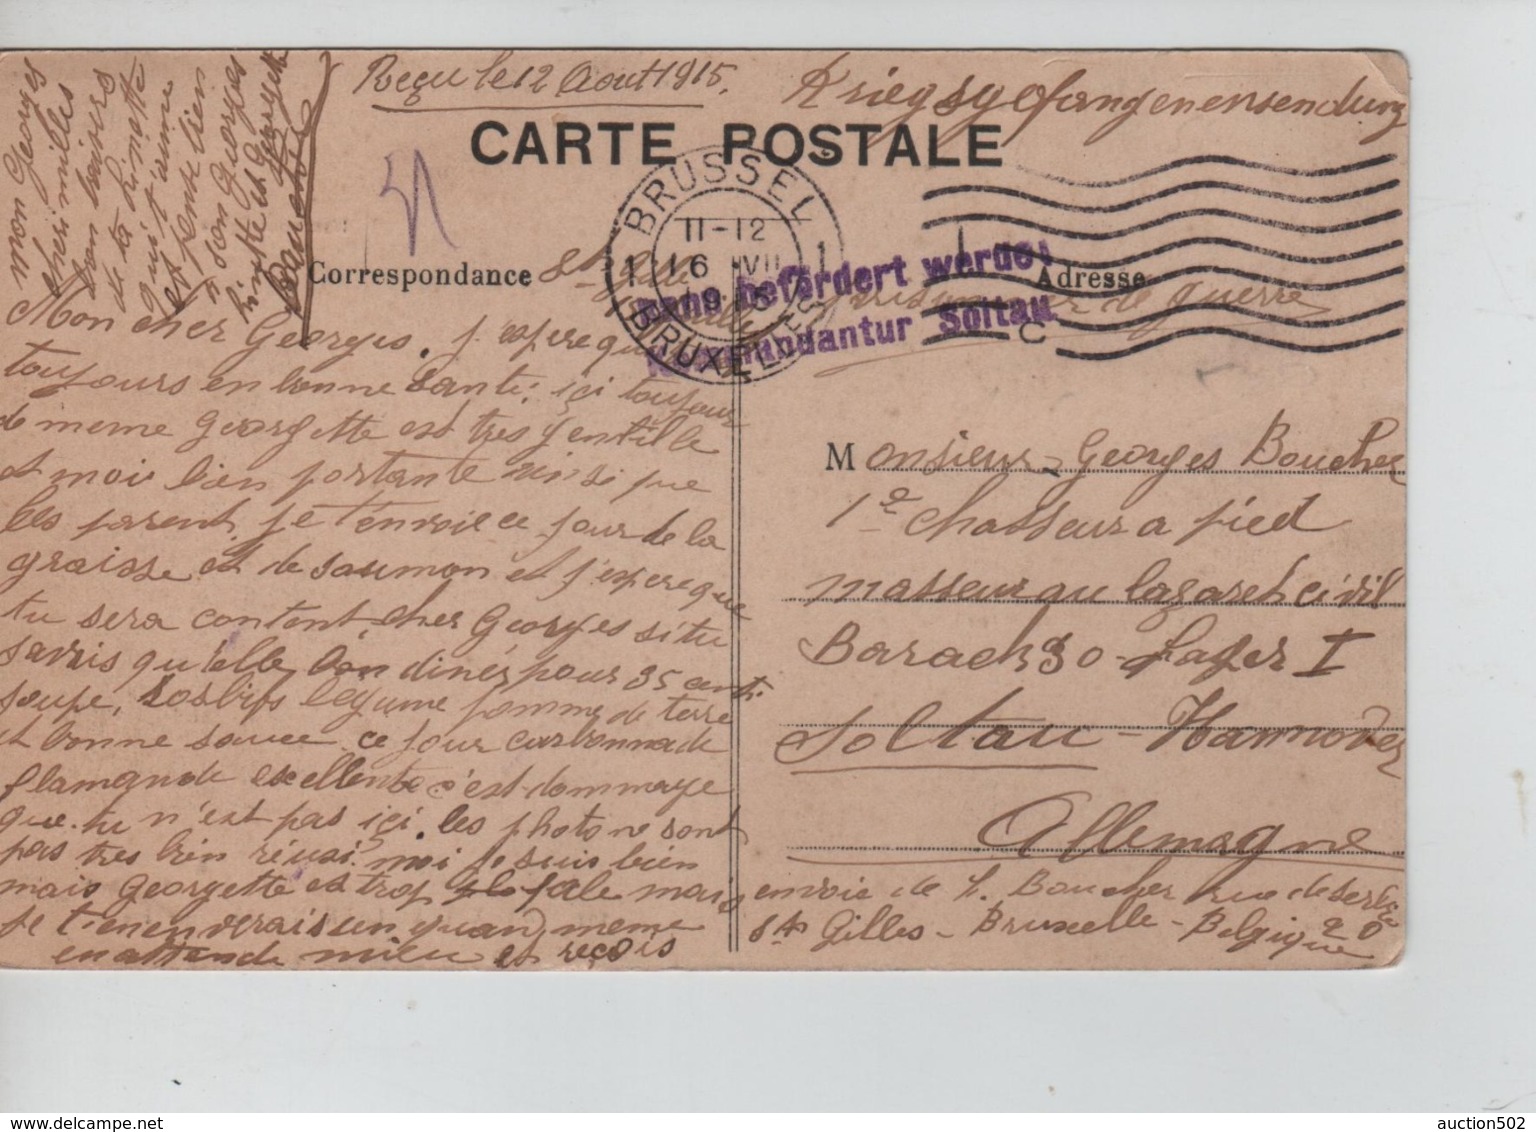 Reçu le 12 Aout 1915.
Kriegsgefangenensendung
CARTE POSTALE
BRUSSEL
11-12
1 16 VII 1
1915
BRUXELLES
C
befördert werde
Kommandantur Soltau
Correspondance
Adresse
St Gille
de guerre
Mon cher Georges. j'espere que
toujours en bonne sante; içi toujour
de meme Georgette est tres gentille
et moi bien portante ainsi que
les parent, je t'envoie ce jour de la
graisse et de saumon et j'espere que
tu sera content, cher Georges si tu
savais qu'elle bon diner pour 35 centi
soupe, rosbifs legume pomme de terre
et bonne sauce ce jour carbonnade
flamande excellente c'est dommage
que tu n'est pas içi. les photo ne sont
pas tres bien réusi moi je suis bien
mais Georgette est trop pale mais
je t'en enverais un quand meme
en attende mieu et reçois
mon Georges
cheri milles
bon baisers
de ta
qui t'aime
et pense bien
a son Georges
et Georgette
Boucher
Monsieur Georges Boucher
1e chasseur a pied
masseur au lazaret civil
Barack 30 - Lager I
Soltau - Hannover
Allemagne
envoie de L. Boucher rue de Serbie
St Gilles - Bruxelle - Belgique 20
auction502